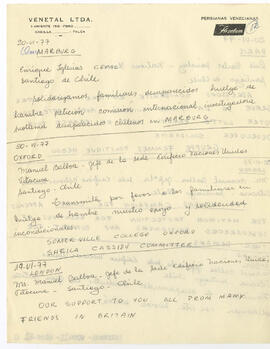 VENETAL LTDA.
PERSIANAS VENECIANAS
CHILLAN - TALCA
20-VI-77
MARBURG
Enrique Iglesias CEPAL
Santiago de Chile
Solidarizamos, familiares desaparecidos huelga de
hambre petición comisión internacional, investigativa
problema desaparecidos chilenos en MARBURG
20-VI-77
OXFORD
Manuel Balboa - jefe de la sede Edificio Naciones Unidas
Vitacura
Santiago - Chile
Transmita por favor a los familiares en
huelga de hambre nuestro apoyo y solidaridad
incondicionales.
SOMERVILLE COLLEGE OXFORD
SHEILA CASSIDY COMMITTEE
19.VI.77
LONDON
Mr. Manuel Balboa, jefe de la sede edificio Naciones Unidas,
Vitacura - Santiago - Chile
OUR SUPPORT TO YOU ALL FROM MANY
FRIENDS IN BRITAIN